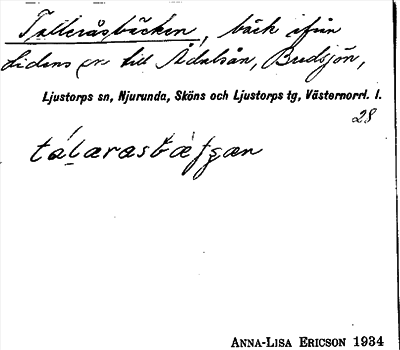 Talleråsbäcken, bäck ifrån
Lidens sn till Ådalsån, Bredsjön,
Ljustorps sn, Njurunda, Sköns och Ljustorps tg, Västernorrl. l.
28
ANNA-LISA ERICSON 1934